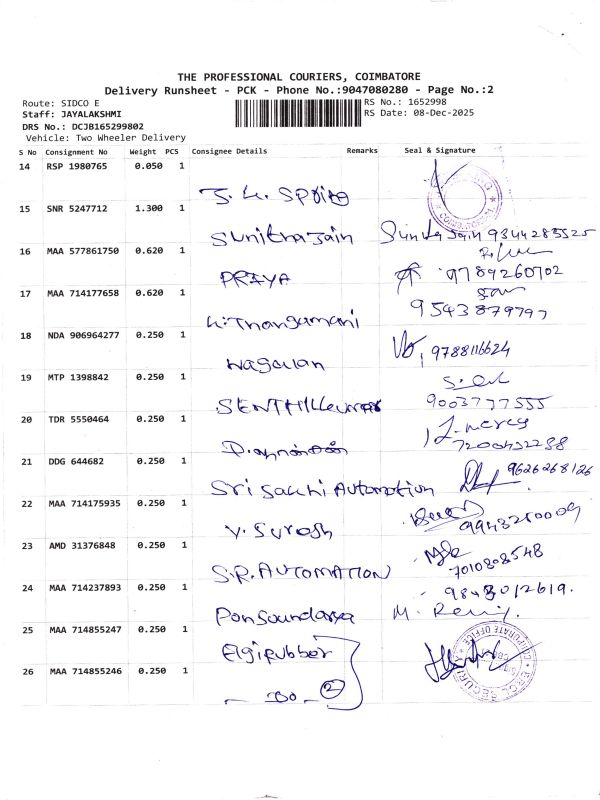 THE PROFESSIONAL COURIERS, COIMBATORE
Delivery Runsheet - PCK - Phone No.:9047080280 - Page No.:2
Route: SIDCO E RS No.: 1652998
Staff: JAYALAKSHMI RS Date: 08-Dec-2025
DRS No.: DCJB165299802
Vehicle: Two Wheeler Delivery
S No Consignment No Weight PCS Consignee Details Remarks Seal & Signature
14 RSP 1980765 0.050 1
15 SNR 5247712 1.300 1
Sunitha Jain Sunita Jain 9344283525
16 MAA 577861750 0.620 1
PRIYA 9789260702
17 MAA 714177658 0.620 1
K. Thangamani 9543879797
18 NDA 906964277 0.250 1
Nagalan 9788116624
19 MTP 1398842 0.250 1
SENTHILkumar 9003777555
20 TDR 5550464 0.250 1
J. mercy
21 DDG 644682 0.250 1
Sri Sakthi Automation 9626268126
22 MAA 714175935 0.250 1
V. Suresh 9943280009
23 AMD 31376848 0.250 1
S.R. AUTOMATION 7010808548
24 MAA 714237893 0.250 1
9843012619.
Ponsoundarya
25 MAA 714855247 0.250 1
Elgirubber
26 MAA 714855246 0.250 1
- Do - 2